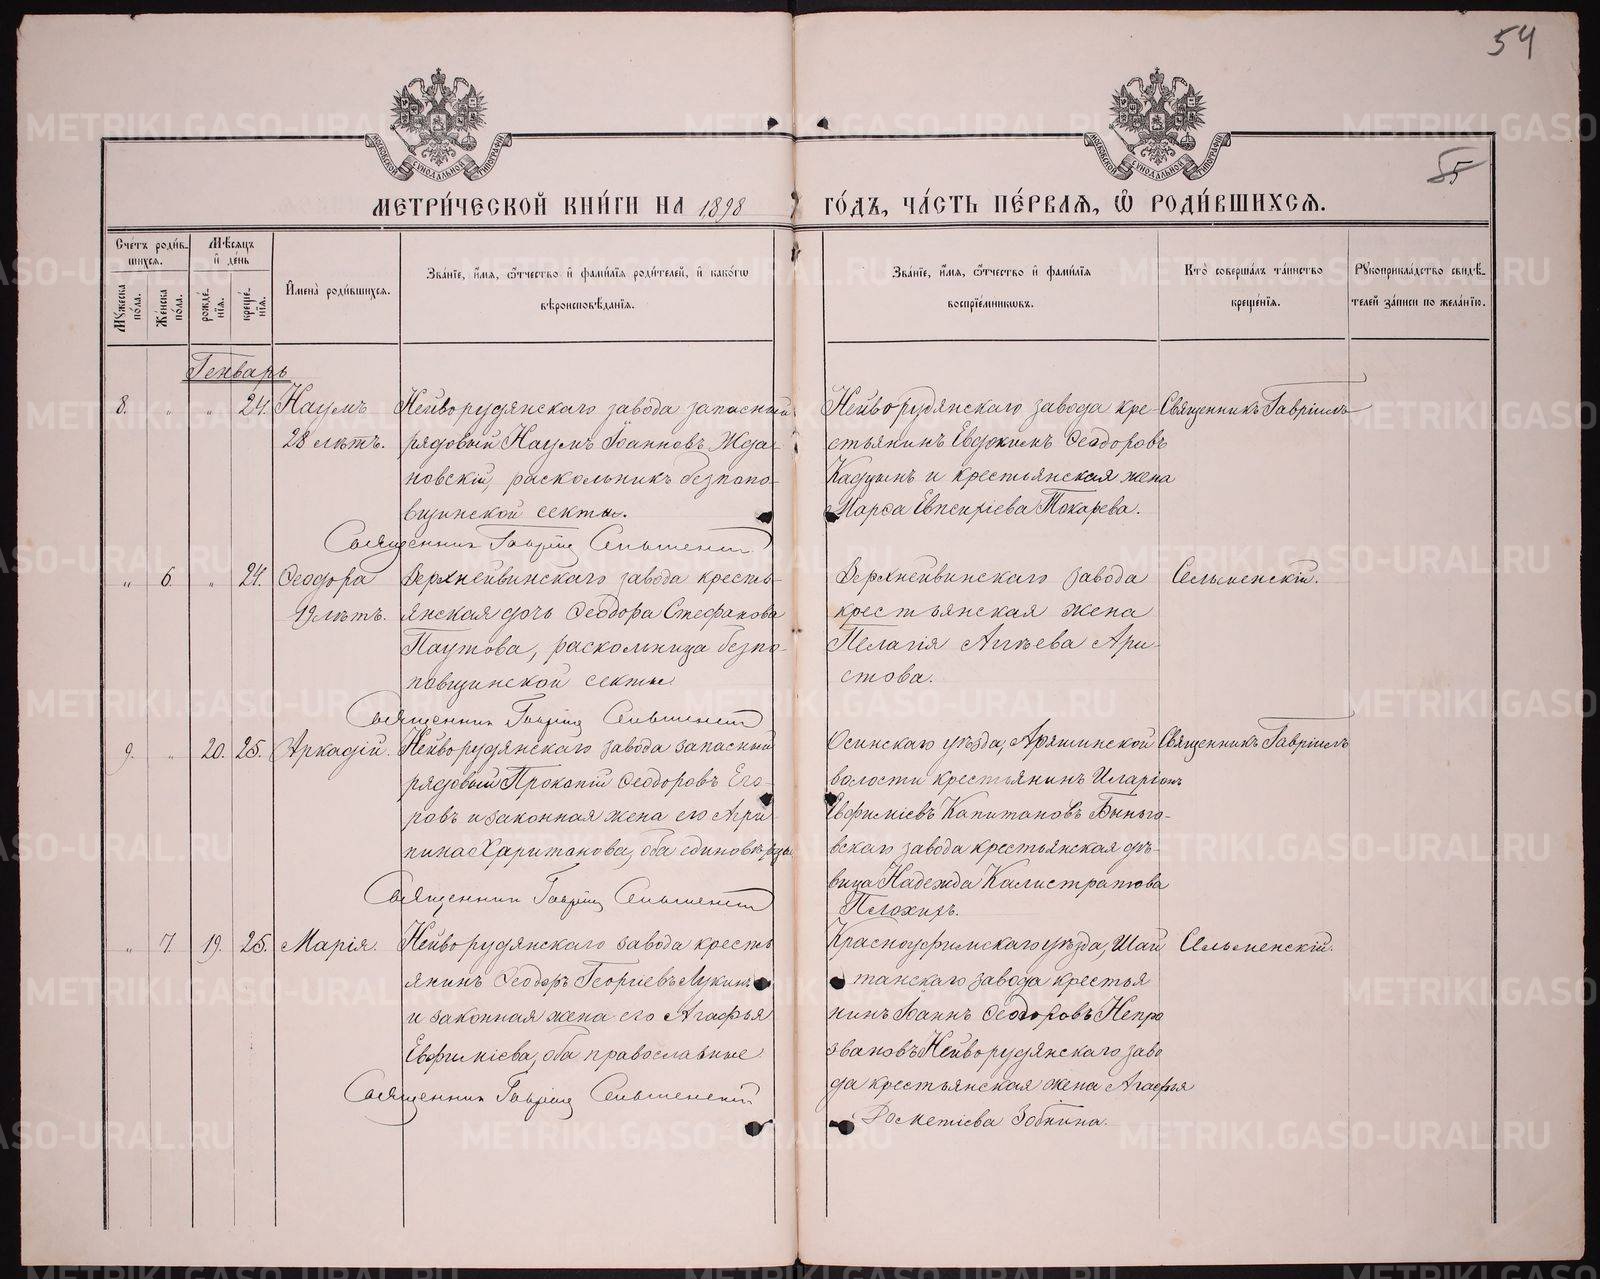 54
55
МЕТРИ́ЧЕСКОЙ КНИ́ГИ НА 1898
ГО́ДЪ, ЧА́СТЬ ПЕ́РВАЯ, Ѡ РОДИ́ВШИХСЯ.
Сче́тъ роди́в-
шихся.
Мѣ́сяцъ
и де́нь
Мꙋ́жеска
по́ла.
Же́нска
по́ла.
рожде́-
нїя.
креще́-
нїя.
И҆мена̀ роди́вшихся.
Зва́нїе, и҆́мя, ѻ҆́тчество и҆ фами́лїя роди́телей, и҆ како́гѡ
вѣроисповѣ́данїя.
Зва́нїе, и҆́мя, ѻ҆́тчество и҆ фами́лїя
воспрїе́мниковъ.
Кто̀ соверша́лъ та́инство
креще́нїя.
Рꙋкоприкла́дство свидѣ́-
телей за́писи по жела́нїю.
Генварь
8. " " 24. Наумъ
28 лѣтъ.
Нейворудянскаго завода запасный
рядовый Наумъ Іоанновъ Жда-
новскій, раскольникъ безпопо-
вщинской секты.
Священник Гавріил
Нейворудянскаго завода кре-
стьянинъ Евдокимъ Ѳеодоровъ
и крестьянская жена
Марѳа Токарева.
Священникъ Гавріилъ
" 6 " 24. Ѳеодора
19 лѣтъ.
Верхнейвинскаго завода кресть-
янская дочь Ѳеодора Стефанова
Паутова, раскольница безпо-
повщинской секты
Священник Гавріил
Верхнейвинскаго завода
крестьянская жена
Пелагія Ари-
стова.
Сельменскій.
9. " 20. 25. Аркадій.
Нейворудянскаго завода запасный
рядовый Прокопій Ѳеодоровъ Его-
ровъ и законная жена его Агри-
пина Харитонова, оба единовѣрцы
Священник Гавріил
Осинскаго уѣзда, Аряшинской
волости крестьянинъ Иларіонъ
Евфиміевъ Капитановъ Быньго-
вскаго завода крестьянская дѣ-
вица Надежда Калистратова
Плохихъ.
Священникъ Гавріилъ
" 7. 19. 25. Марія.
Нейворудянскаго завода кресть
янинъ Ѳеодоръ Георгіевъ Лукинъ
и законная жена его Агафья
Евфиміева, оба православные
Священник Гавріил Сельменскій
Красноуфимскаго уѣзда, Шай
танскаго завода крестья
нинъ Іоаннъ Ѳеодоровъ Непро
звановъ Нейворудянскаго заво
да крестьянская жена Агафья
Дометіева Зобнина.
Сельменскій.
METRIKI.GASO-URAL.RU